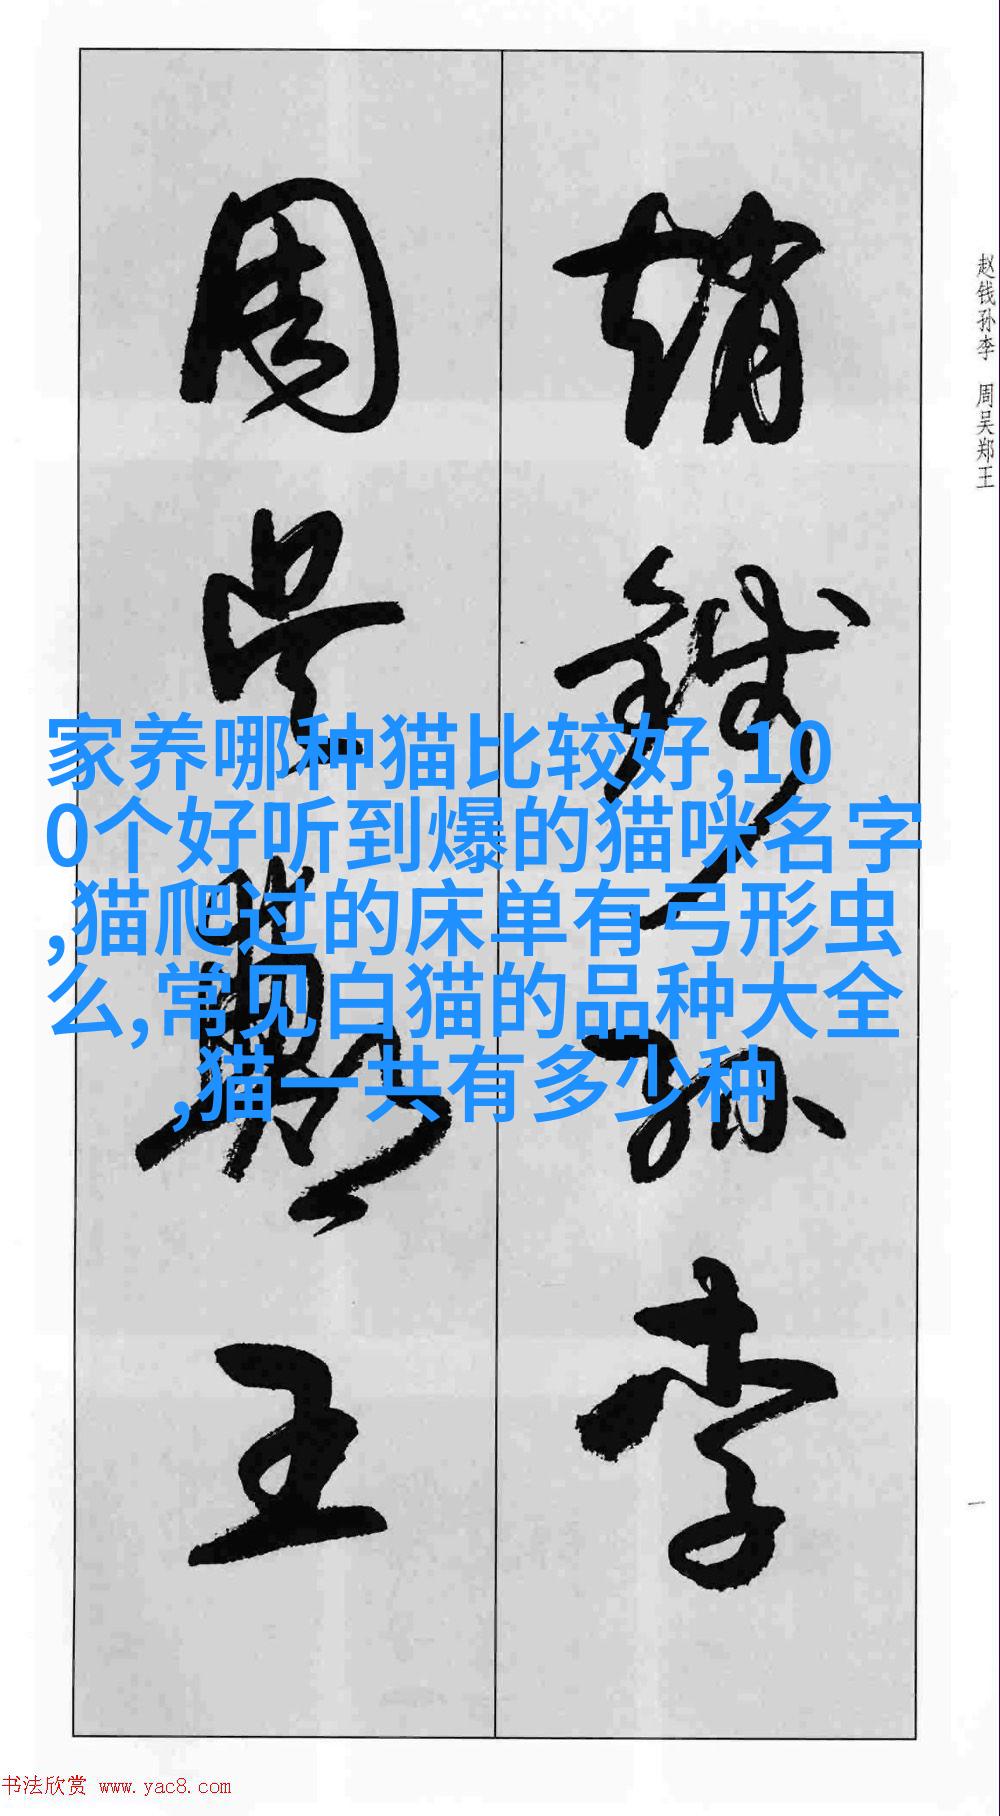 赵钱孙李 周吴郑王
趙錢孫李
周吴鄭王
家养哪种猫比较好,10
0个好听到爆的猫咪名字
,猫爬过的床单有弓形虫
么,常见白猫的品种大全
,猫一共有多少种
一
书法欣赏 www.yac8.com